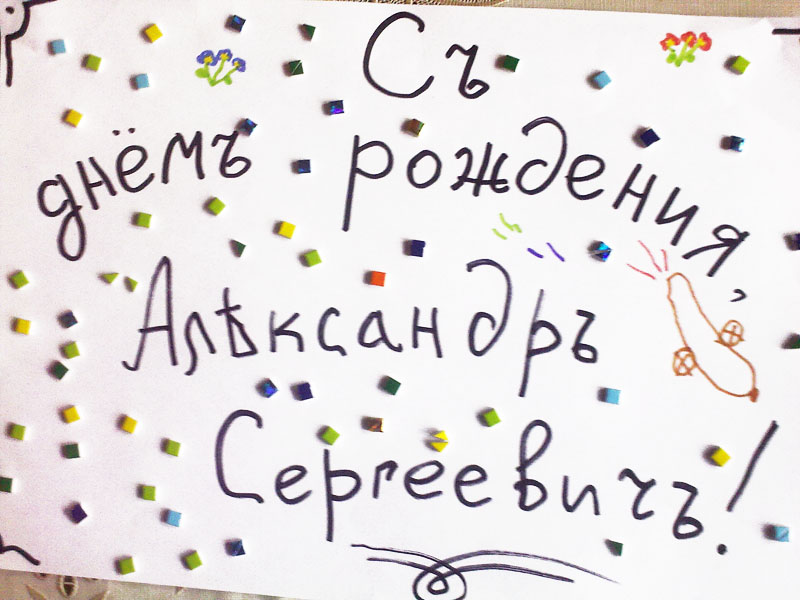 Съ
днёмъ рождения,
Алѣксандръ
Сергеевичъ!